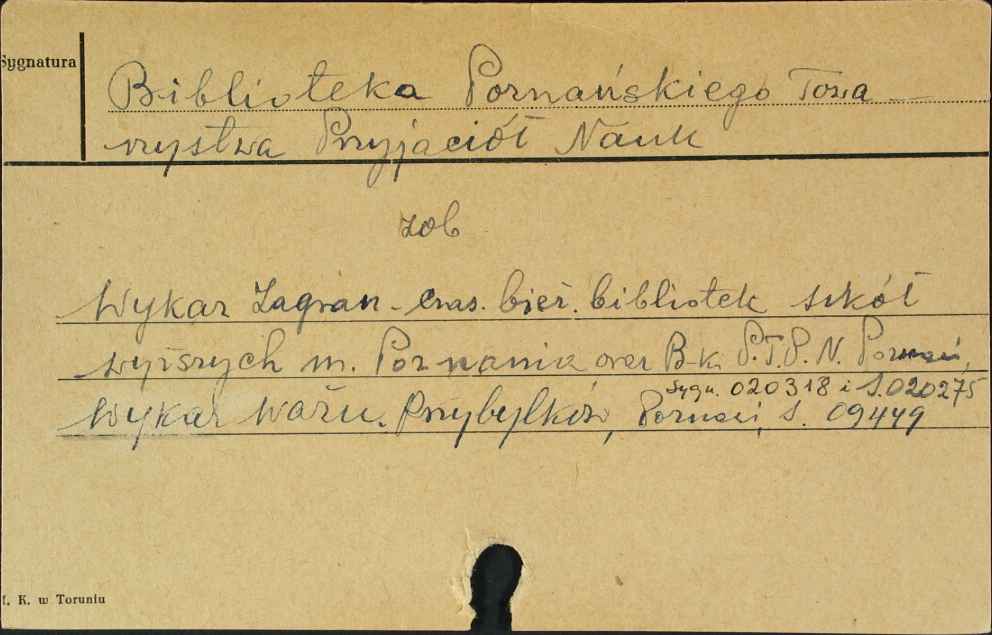 Sygnatura
Biblioteka Poznańskiego Towa-
rzystwa Przyjaciół Nauk
zob
Wykaz Zagran. czas. bież. bibliotek szkół
wyższych m. Poznania oraz B-k. P.T.P.N. Poznań,
Sygn. 020318 i S.020275
Wykaz Ważn. Przybytków, Poznań, S. 09449
I. K. w Toruniu